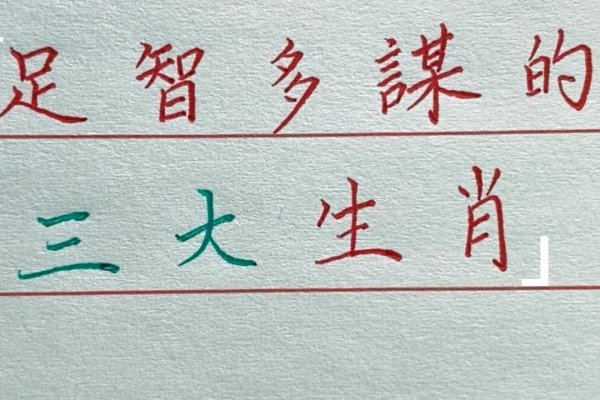 足智多謀的
三大生肖」